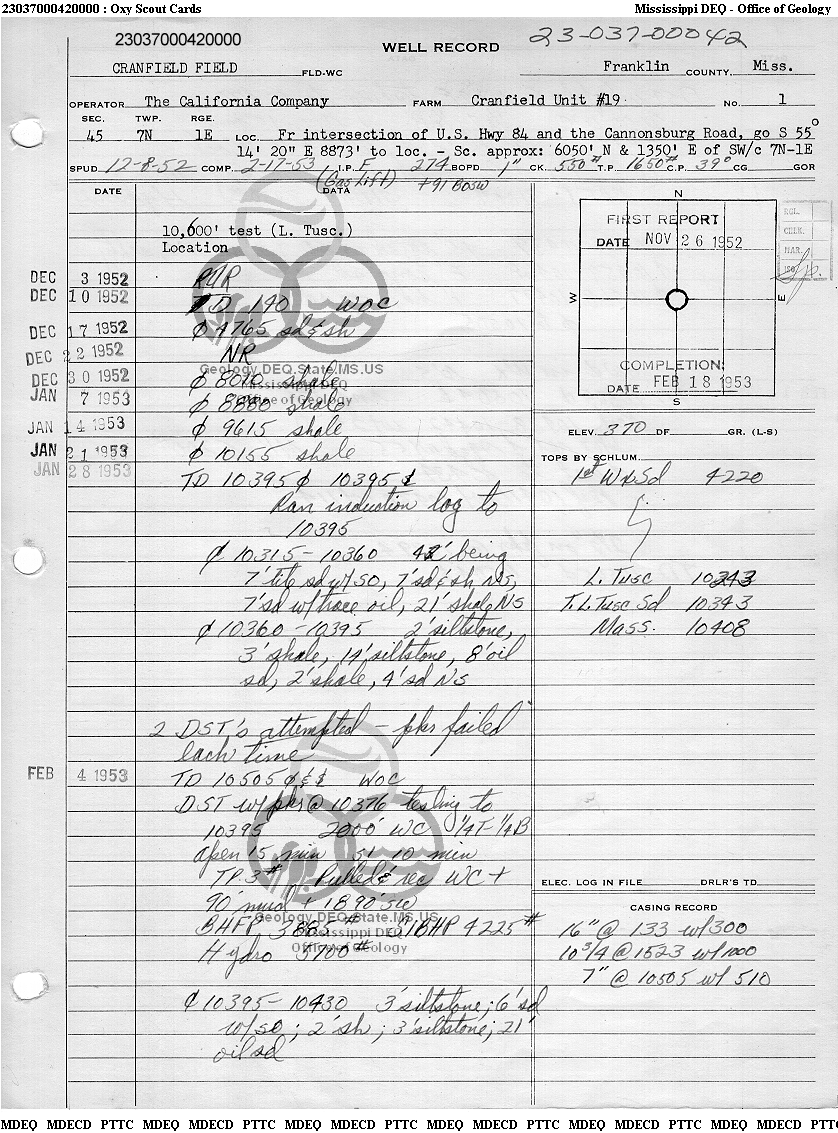 23037000420000 : Oxy Scout Cards Mississippi DEQ - Office of Geology
23037000420000
23-037-00042
WELL RECORD
CRANFIELD FIELD FLD-WC Franklin COUNTY, Miss.
OPERATOR The California Company FARM Cranfield Unit #19 NO. 1
SEC. TWP. RGE.
45 7N 1E LOC. Fr intersection of U.S. Hwy 84 and the Cannonsburg Road, go S 55°
14' 20" E 8873' to loc. - Sc. approx: 6050' N & 1350' E of SW/c 7N-1E
SPUD 12-8-52 COMP. 2-17-53 I.P. F 274 BOPD 1" CK. 550# T.P. 1650# C.P. 39° CG GOR
(Gas Lift) +91 BOSW
DATE DATA
10,600' test (L. Tusc.)
Location
DEC 3 1952 RUR
DEC 10 1952 TD 190 WOC
DEC 17 1952 ₵ 4765 sd & sh
DEC 22 1952 NR
Geology.DEQ.State.MS.US
DEC 30 1952 ₵ 8010 shale
Mississippi DEQ
JAN 7 1953 ₵ 8880 shale
Office of Geology
JAN 14 1953 ₵ 9615 shale
JAN 21 1953 ₵ 10155 shale
JAN 28 1953 TD 10395 ₵ 10395 ₵
Ran induction log to
10395
₵ 10315-10360 42' being
7' tite sd w/ SO, 7' sd & sh NS,
7' sd w/ trace oil, 21' shale NS
₵ 10360-10395 2' siltstone,
3' shale, 14' siltstone, 8' oil
sd, 2' shale, 4' sd NS
2 DST's attempted - pkr failed
each time
FEB 4 1953 TD 10505 WOC
DST w/ pkr @ 10376 testing to
10395 2000' WC 1/4T-1/4B
Open 15 min SI 10 min
TP 3# Pulled & rec WC +
90' mud + 1890' SW
Geology.DEQ.State.MS.US
BHFP 3885# SIBHP 4225#
Mississippi DEQ
Office of Geology
Hydro 5700#
₵ 10395-10430 3' siltstone; 6' sd
w/ SO; 2' sh; 3' siltstone; 21'
oil sd
N
FIRST REPORT
DATE NOV 26 1952
W E
COMPLETION:
DATE FEB 18 1953
S
REL.
CHK.
MAR.
ISO.
ELEV. 370 DF GR. (L-S)
TOPS BY SCHLUM.
1st Wx Sd 4220
L. Tusc 10343
T. L. Tusc Sd 10343
Mass. 10408
ELEC. LOG IN FILE DRLR'S TD
CASING RECORD
16" @ 133 w/300
10 3/4 @ 1523 w/1000
7" @ 10505 w/ 510
MDEQ MDECD PTTC MDEQ MDECD PTTC MDEQ MDECD PTTC MDEQ MDECD PTTC MDEQ MDECD PTTC MDEQ MDECD PTT